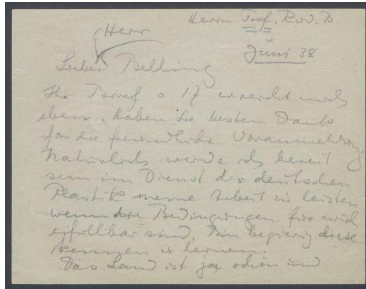 Herrn Prof. Rud. B.
Herr
Juni 38
Lieber Belling
Ihr Brief v 17. erreicht mich
eben. Haben Sie besten Dank
für die freundliche
Natürlich werde ich bereit
sein im Dienst der deutschen
Plastik meine Arbeit zu leisten
wenn die Bedingungen für mich
erfüllbar sind. Bin begierig diese
kennen zu lernen.
Das Land ist ja schön und